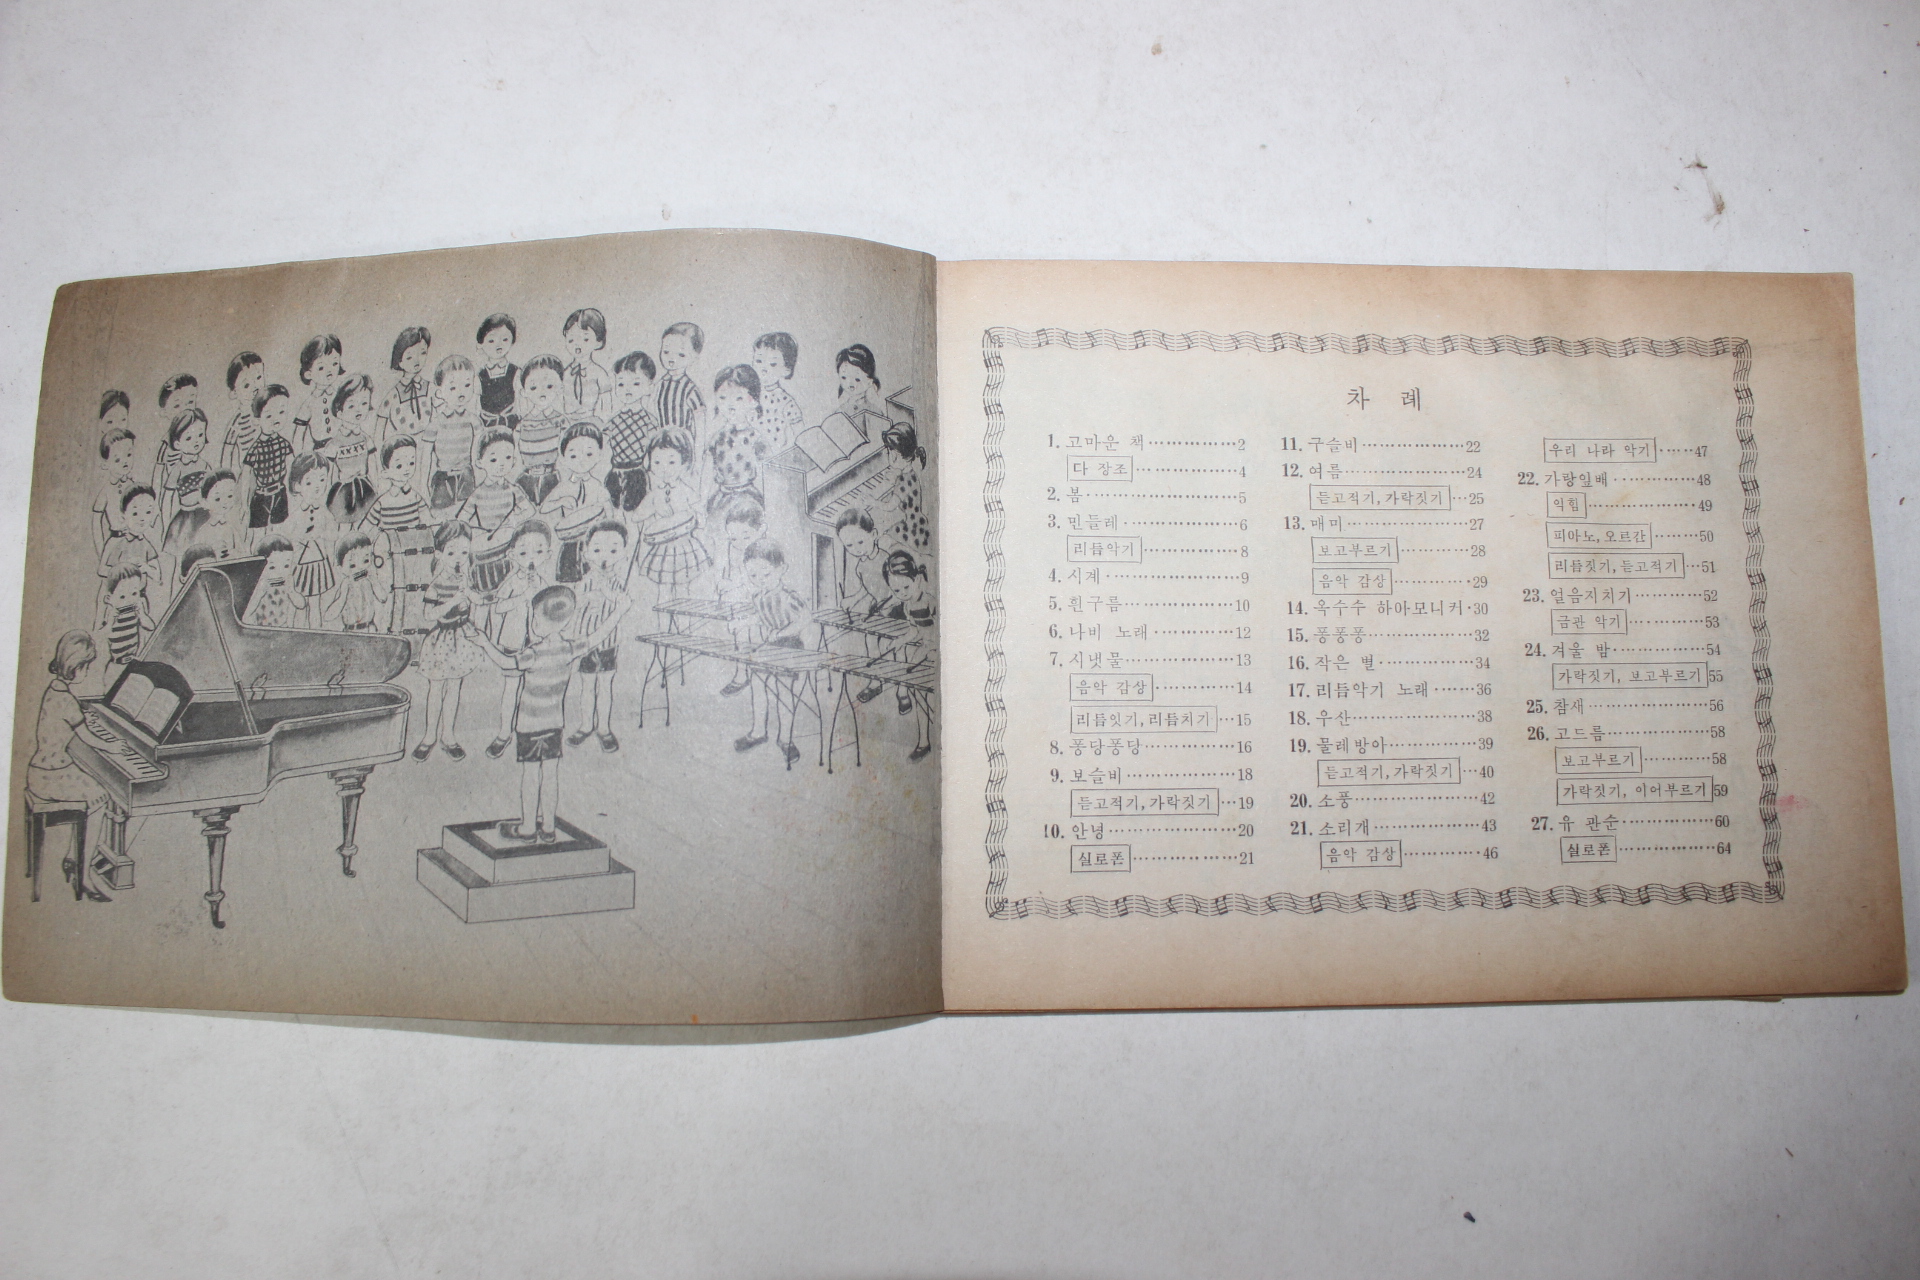 차 례
1. 고마운 책 ················ 2
다 장조 ················ 4
2. 봄 ················ 5
3. 민들레 ················ 6
리듬악기 ················ 8
4. 시계 ················ 9
5. 흰구름 ················ 10
6. 나비 노래 ················ 12
7. 시냇물 ················ 13
음악 감상 ················ 14
리듬잇기, 리듬치기 ··· 15
8. 퐁당퐁당 ················ 16
9. 보슬비 ················ 18
듣고적기, 가락짓기 ··· 19
10. 안녕 ················ 20
실로폰 ················ 21
11. 구슬비 ················ 22
12. 여름 ················ 24
듣고적기, 가락짓기 ··· 25
13. 매미 ················ 27
보고부르기 ············ 28
음악 감상 ············ 29
14. 옥수수 하아모니커 · 30
15. 퐁퐁퐁 ················ 32
16. 작은 별 ················ 34
17. 리듬악기 노래 ······· 36
18. 우산 ················ 38
19. 물레방아 ················ 39
듣고적기, 가락짓기 ··· 40
20. 소풍 ················ 42
21. 소리개 ················ 43
음악 감상 ············ 46
우리 나라 악기 ······ 47
22. 가랑잎배 ············ 48
익힘 ················ 49
피아노, 오르간 ········ 50
리듬짓기, 듣고적기 ··· 51
23. 얼음지치기 ············ 52
금관 악기 ············ 53
24. 겨울 밤 ················ 54
가락짓기, 보고부르기 55
25. 참새 ················ 56
26. 고드름 ················ 58
보고부르기 ············ 58
가락짓기, 이어부르기 59
27. 유 관순 ················ 60
실로폰 ················ 64